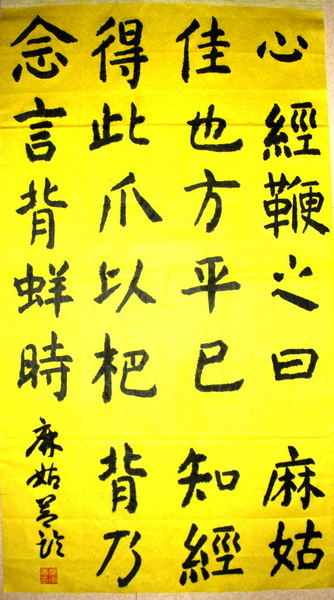 心經鞭之曰麻姑
佳也方平已知經
得此爪以杷背乃
念言背蛘時
麻姑